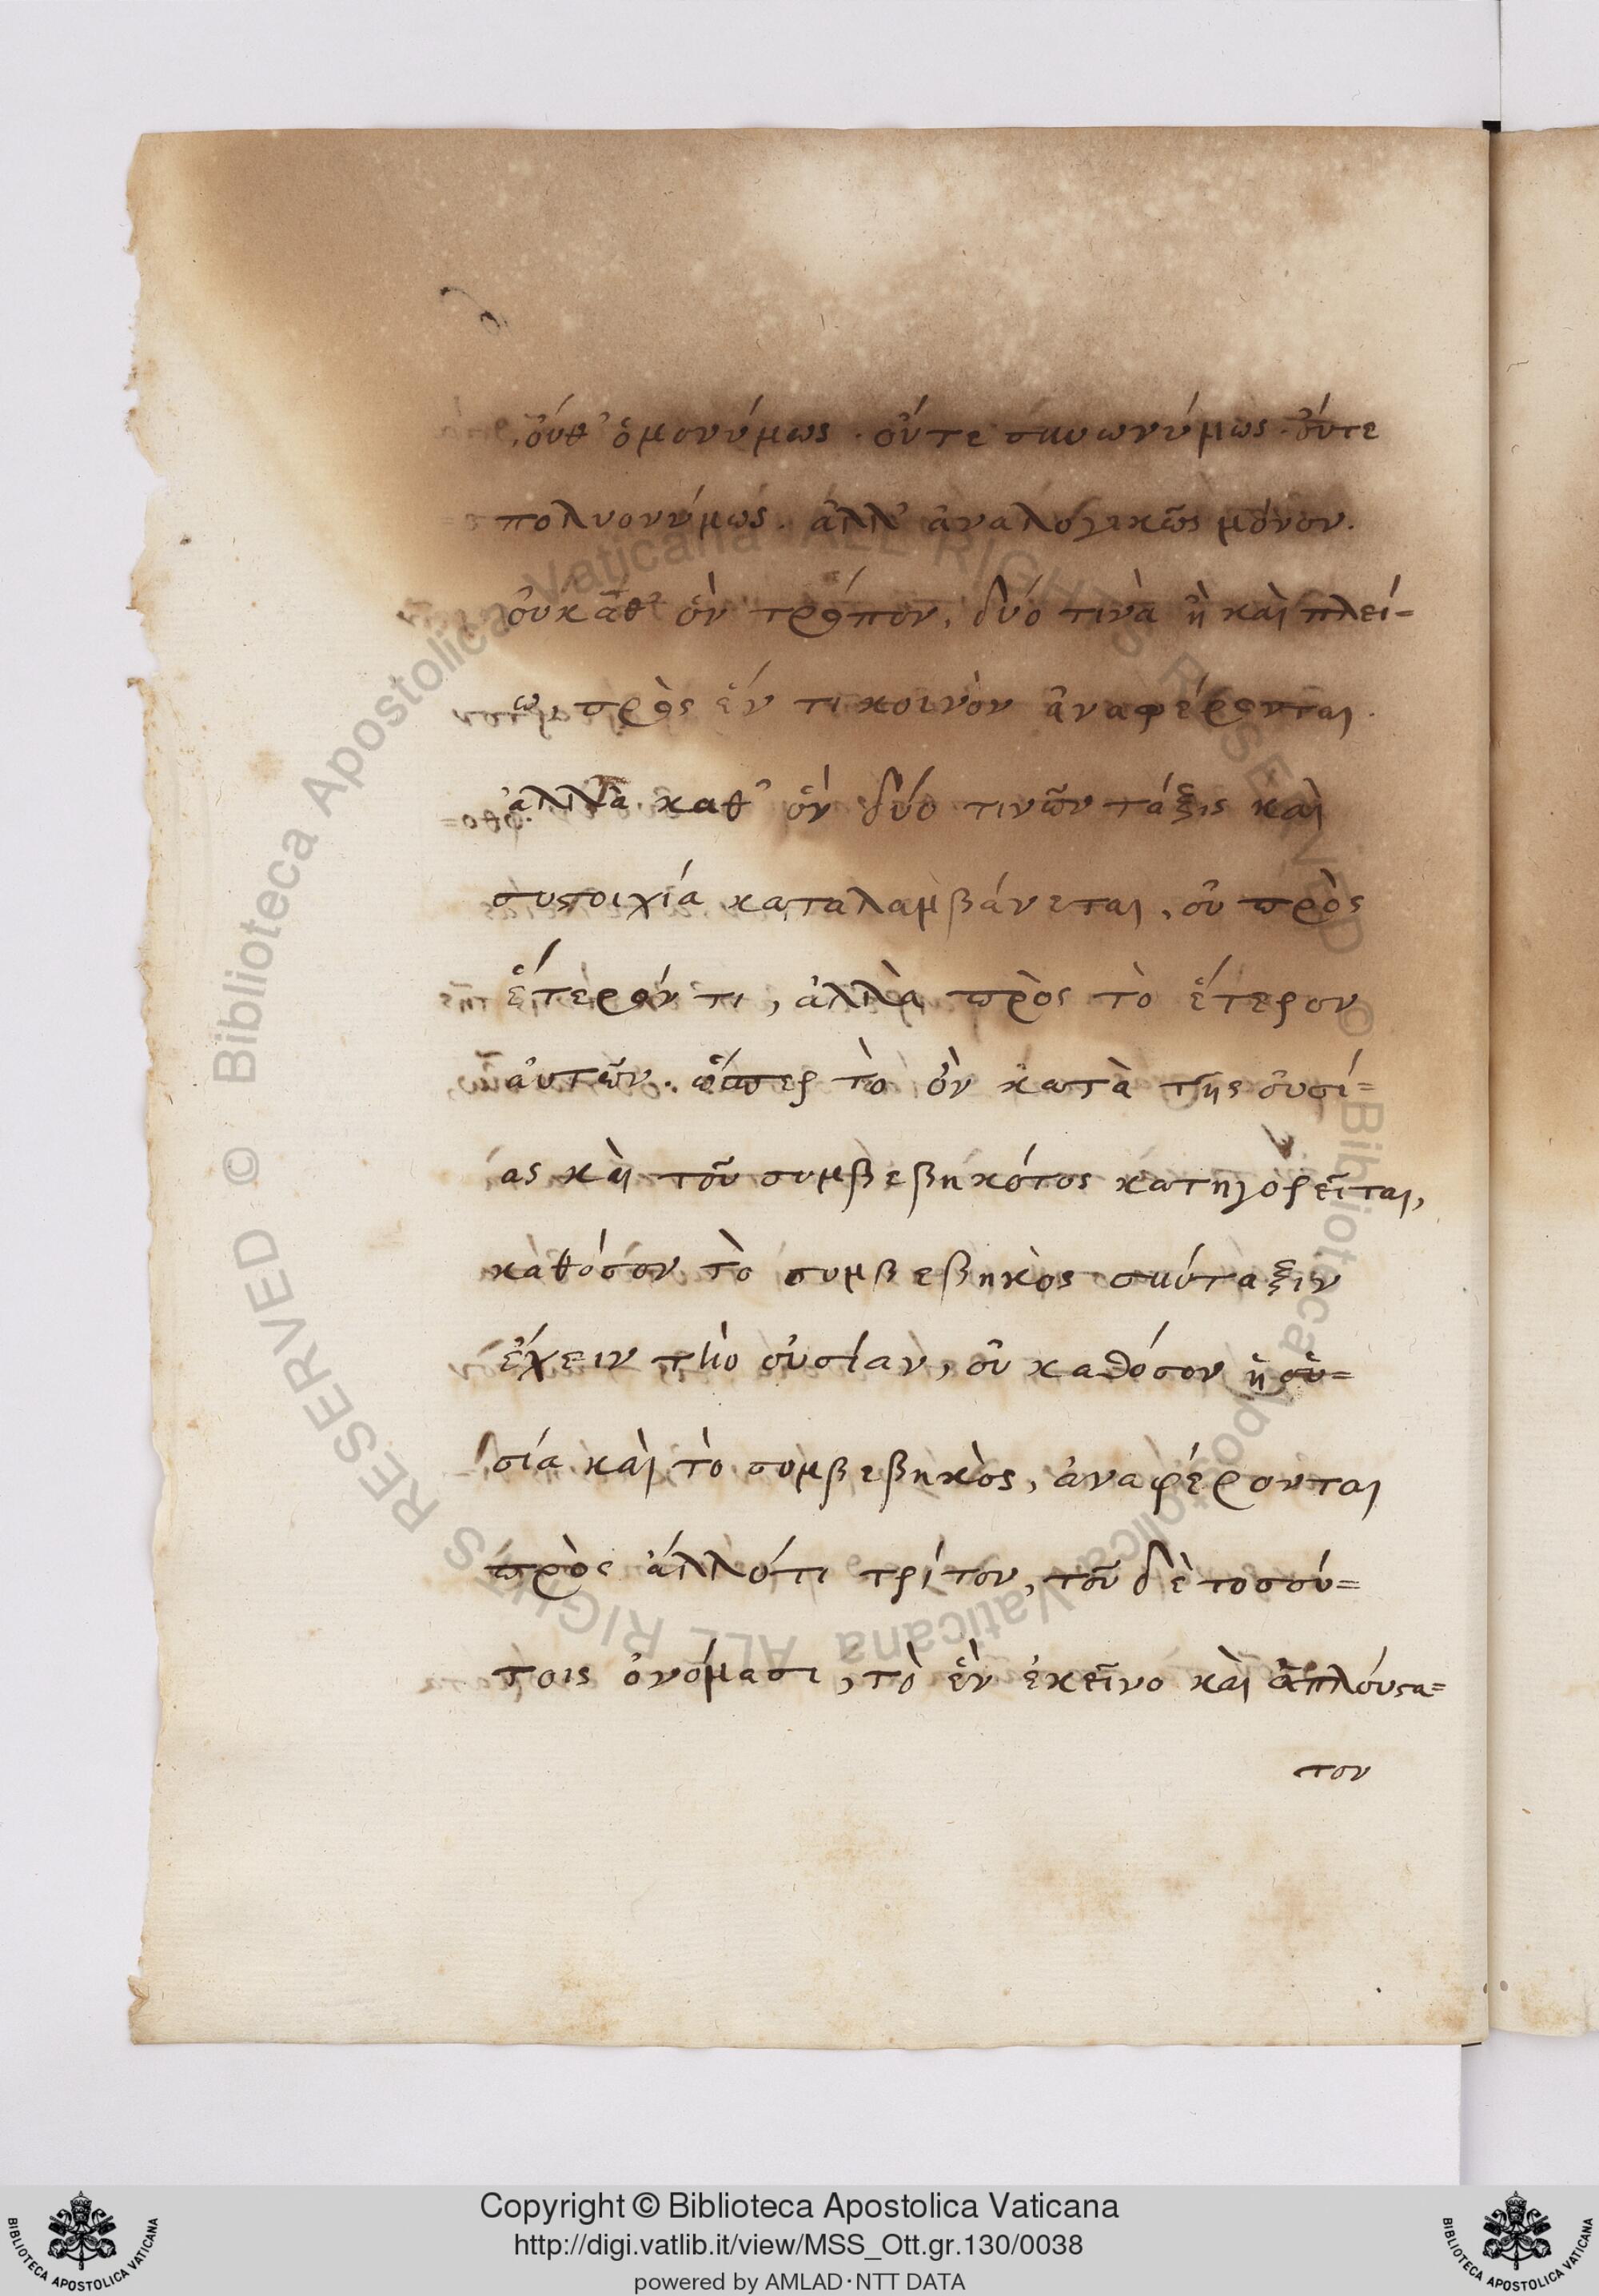 οὔθ' ὁμονύμως. οὔτε συνωνύμως. οὔτε
πολυονύμως. ἀλλ' ἀναλογικῶς μόνον.
οὐ καθ' ὃν τρόπον, δύο τινὰ ἢ καὶ πλεί-
ω, πρὸς ἕν τι κοινὸν ἀναφέρονται.
ἀλλὰ καθ' ὃν δύο τινῶν τάξις καὶ
συστοιχία καταλαμβάνεται, οὐ πρὸς
ἕτερόν τι, ἀλλὰ πρὸς τὸ ἕτερον
αὐτῶν. ὥσπερ τὸ ὂν κατὰ τῆς οὐσί=
ας καὶ τοῦ συμβεβηκότος κατηγορεῖται,
καθόσον τὸ συμβεβηκὸς σύνταξιν
ἔχειν τὴν οὐσίαν, οὐ καθόσον ἡ οὐ=
σία καὶ τὸ συμβεβηκὸς, ἀναφέρονται
πρὸς ἄλλό τι τρίτον, τοῦ δὲ τοσού=
τοις ὀνόμασι, τὸ ἓν ἐκεῖνο καὶ ἁπλούστα=
τον
Copyright © Biblioteca Apostolica Vaticana
http://digi.vatlib.it/view/MSS_Ott.gr.130/0038
powered by AMLAD·NTT DATA
BIBLIOTECA APOSTOLICA VATICANA
BIBLIOTECA APOSTOLICA VATICANA
© Biblioteca Apostolica Vaticana ALL RIGHTS RESERVED
© Biblioteca Apostolica Vaticana ALL RIGHTS RESERVED